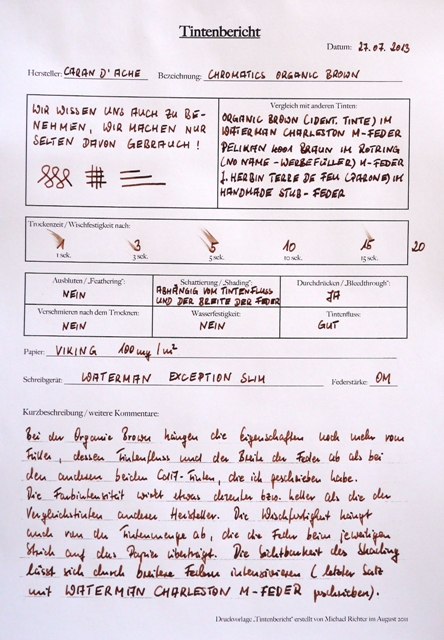 Tintenbericht
Datum: 27.07.2013
Hersteller: CARAN D'ACHE Bezeichnung: CHROMATICS ORGANIC BROWN
WIR WISSEN UNS AUCH ZU BE-
NEHMEN, WIR MACHEN NUR
SELTEN DAVON GEBRAUCH!
Vergleich mit anderen Tinten:
ORGANIC BROWN (IDENT. TINTE) IM
WATERMAN CHARLESTON M-FEDER
PELIKAN 4001 BRAUN IM ROTRING
(NO NAME-WERBEFÜLLER) M-FEDER
J. HERBIN TERRE DE FEU (PARONE) IM
HANDMADE STUB-FEDER
Trockenzeit / Wischfestigkeit nach:
1 3 5 10 15 20
1 sek. 3 sek. 5 sek. 10 sek. 15 sek.
Ausbluten / „Feathering“: Schattierung / „Shading“: Durchdrücken / „Bleedthrough“:
NEIN ABHÄNGIG VOM TINTENFLUSS JA
UND DER BREITE DER FEDER
Verschmieren nach dem Trocknen: Wasserfestigkeit: Tintenfluss:
NEIN NEIN GUT
Papier: VIKING 100mg/m²
Schreibgerät: WATERMAN EXCEPTION SLIM Federstärke: OM
Kurzbeschreibung / weitere Kommentare:
Bei der Organic Brown hängen die Eigenschaften noch mehr vom
Füller, dessen Tintenfluss und der Breite der Feder ab als bei
den anderen beiden CdA-Tinten, die ich geschrieben habe.
Die Farbintensität wirkt etwas dezenter bzw. heller als die der
Vergleichstinten anderer Hersteller. Die Wischfestigkeit hängt
auch von der Tintenmenge ab, die die Feder beim jeweiligen
Strich auf das Papier überträgt. Die Sichtbarkeit des Shading
lässt sich durch breitere Federn intensivieren (letzter Satz
mit WATERMAN CHARLESTON M-FEDER geschrieben).
Druckvorlage „Tintenbericht“ erstellt von Michael Richter im August 2011